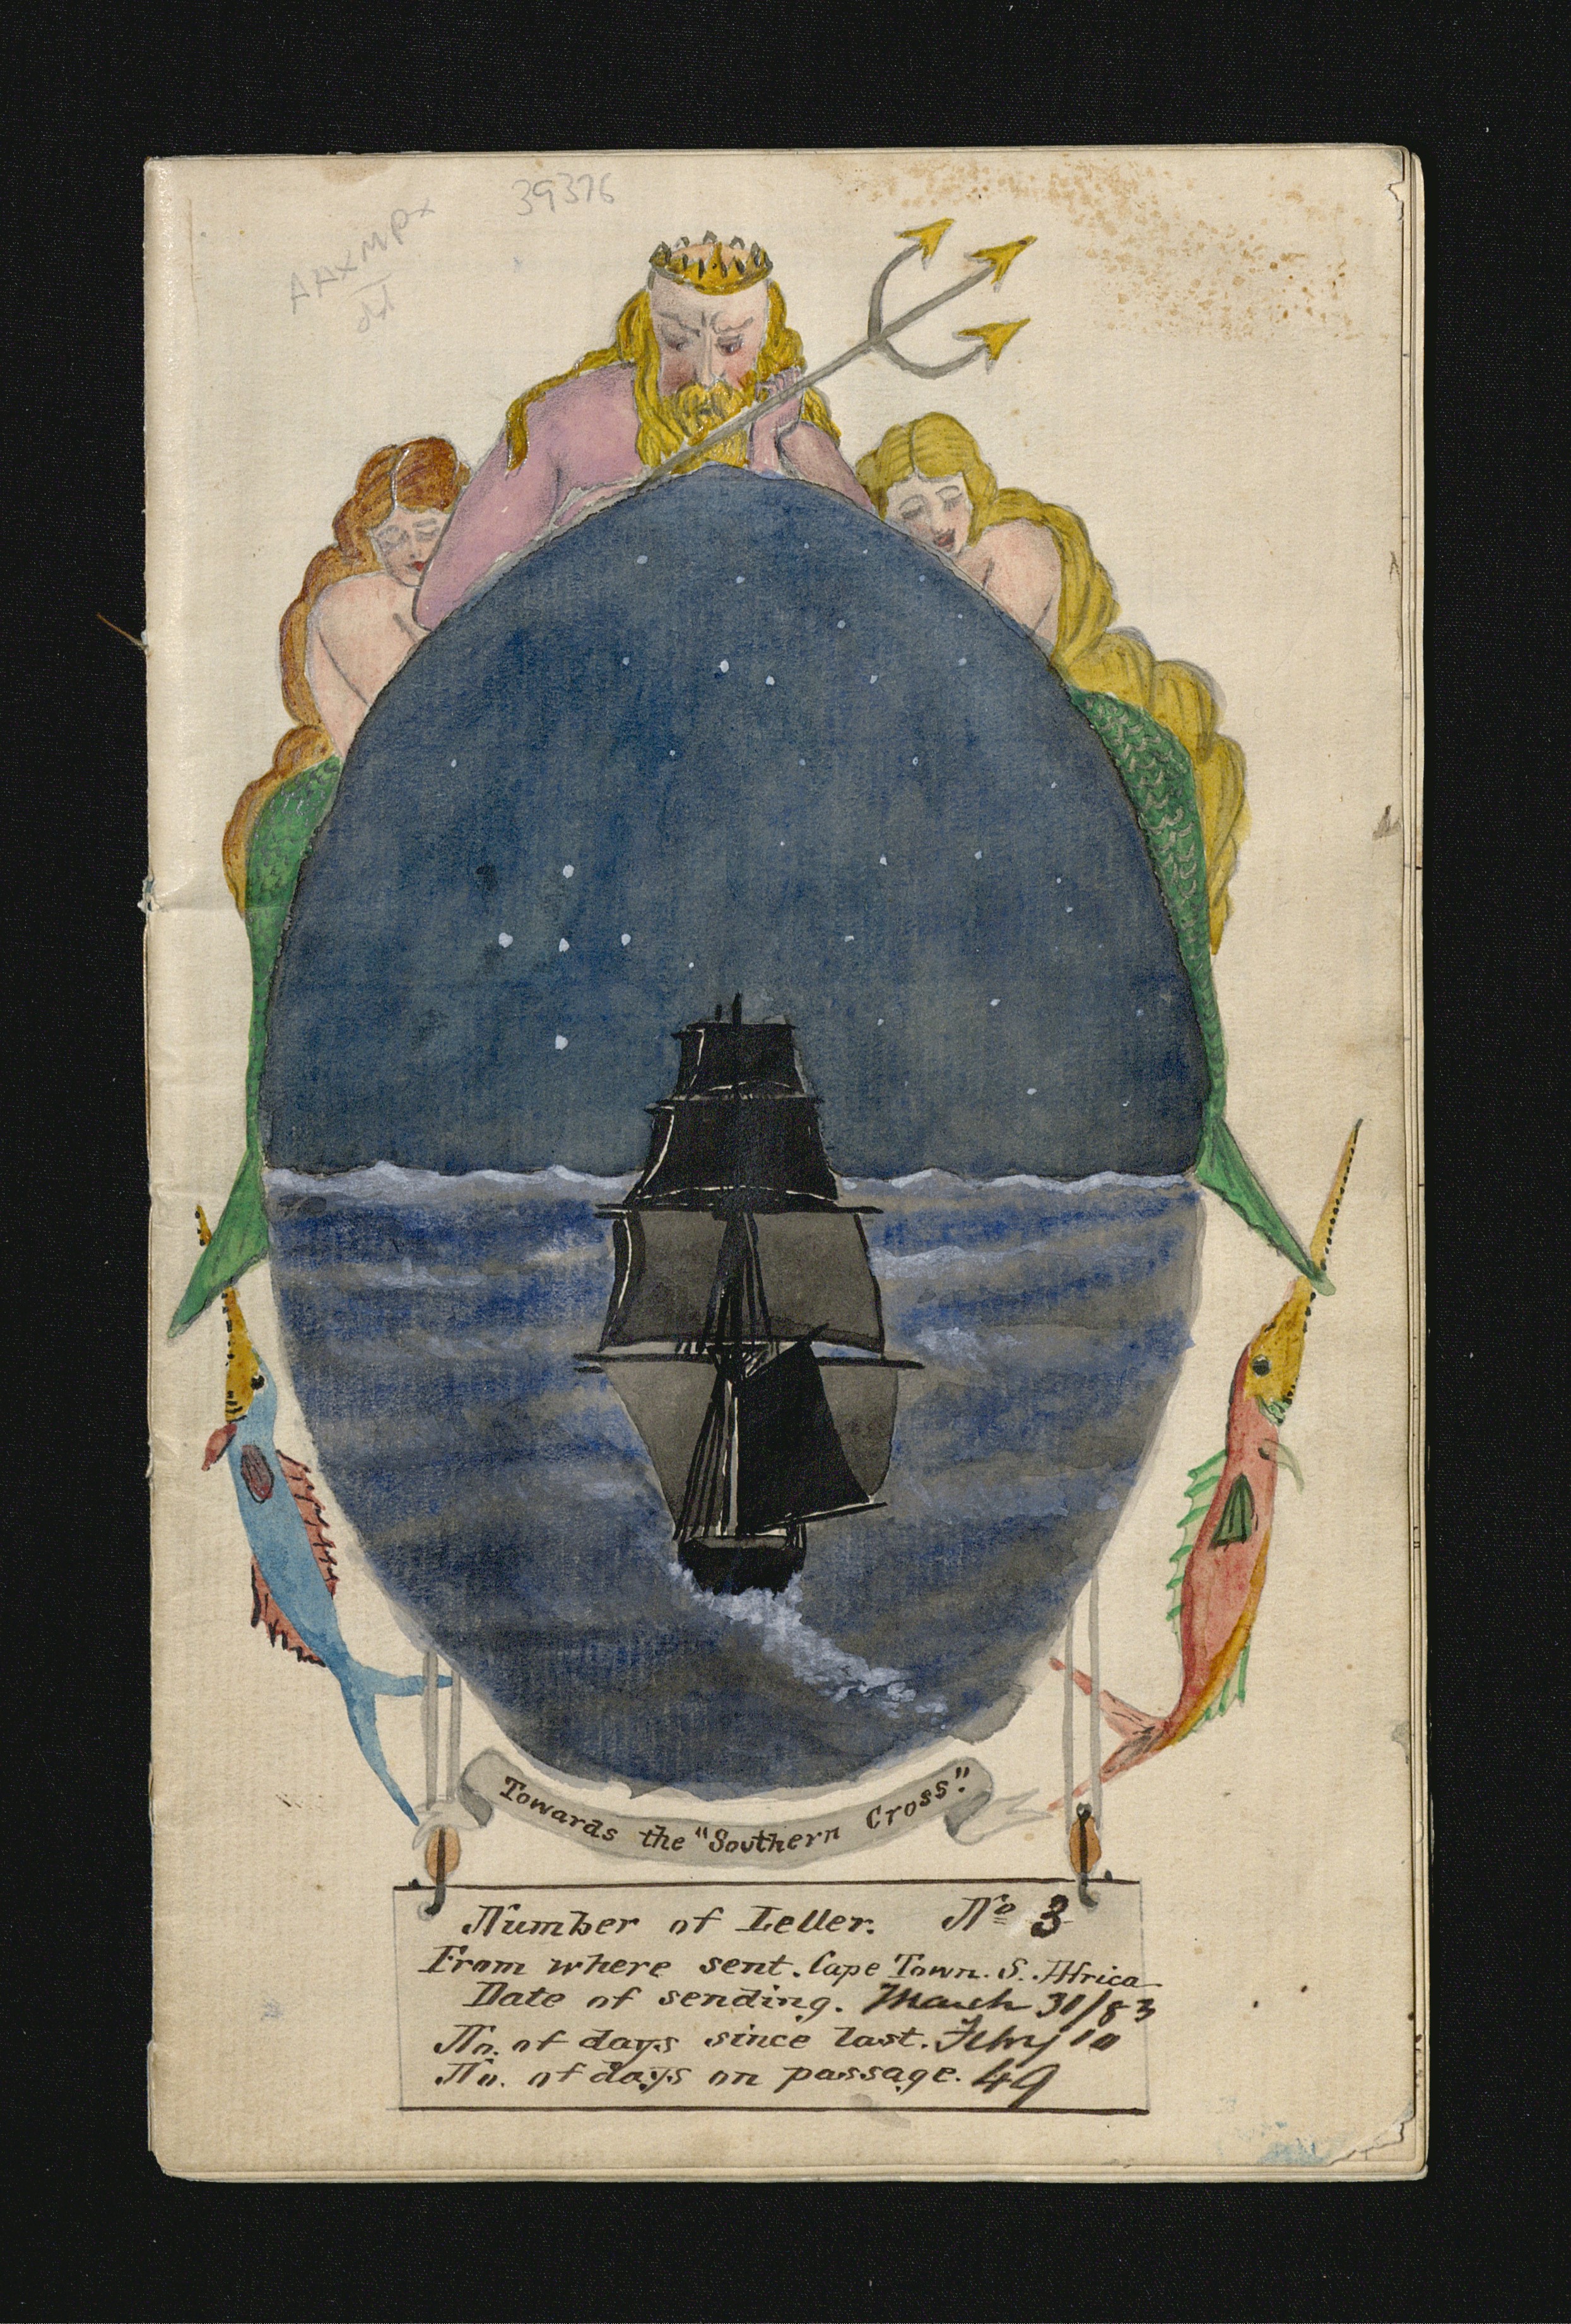 39376
Towards the "Southern Cross".
Number of Letter. No 3
From where sent. Cape Town. S. Africa
Date of sending. March 31/83
No. of days since last. Feby 10
No. of days on passage. 49